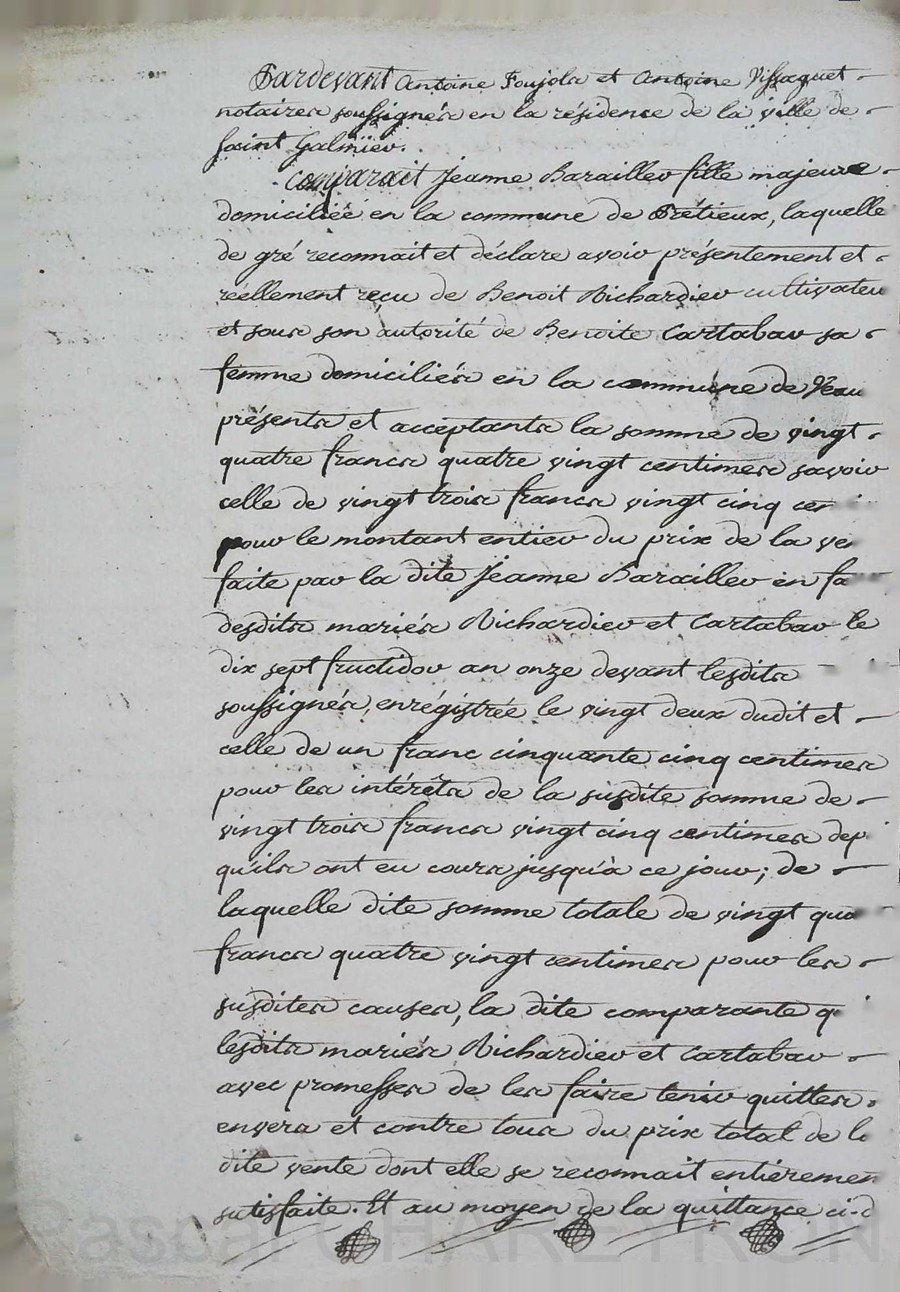 Pardevant Antoine Foujols et Antoine Vissaguet
notaires soussignés en la résidence de la ville de
Saint Galmier.
Comparait Jeanne Barailler fille majeure
domiciliée en la commune de Prétieux, laquelle
de gré reconnait et déclare avoir présentement et
réellement reçu de Benoit Richardier cultivateu
et sous son autorité de Benoite Cartabar sa
femme domiciliés en la commune de Veau
présents et acceptants la somme de vingt
quatre francs quatre vingt centimes savoir
celle de vingt trois francs vingt cinq cen
pour le montant entier du prix de la ve
faite par la dite Jeanne Barailler en fa
desdits mariés Richardier et Cartabar le
dix sept fructidor an onze devant lesdits
soussignés, enrégistrée le vingt deux dudit et
celle de un franc cinquante cinq centimes
pour les intérêts de la susdite somme de
vingt trois francs vingt cinq centimes dep
qu'ils ont eu cours jusqu'à ce jour; de
laquelle dite somme totale de vingt qua
francs quatre vingt centimes pour les
susdites causes, la dite comparante q
lesdits mariés Richardier et Cartabar
avec promesses de les faire tenir quittes
envers et contre tous du prix total de l
dite vente dont elle se reconnait entièremen
satisfaite. Et au moyen de la quittance ci-d
Pascal CHAREYRON